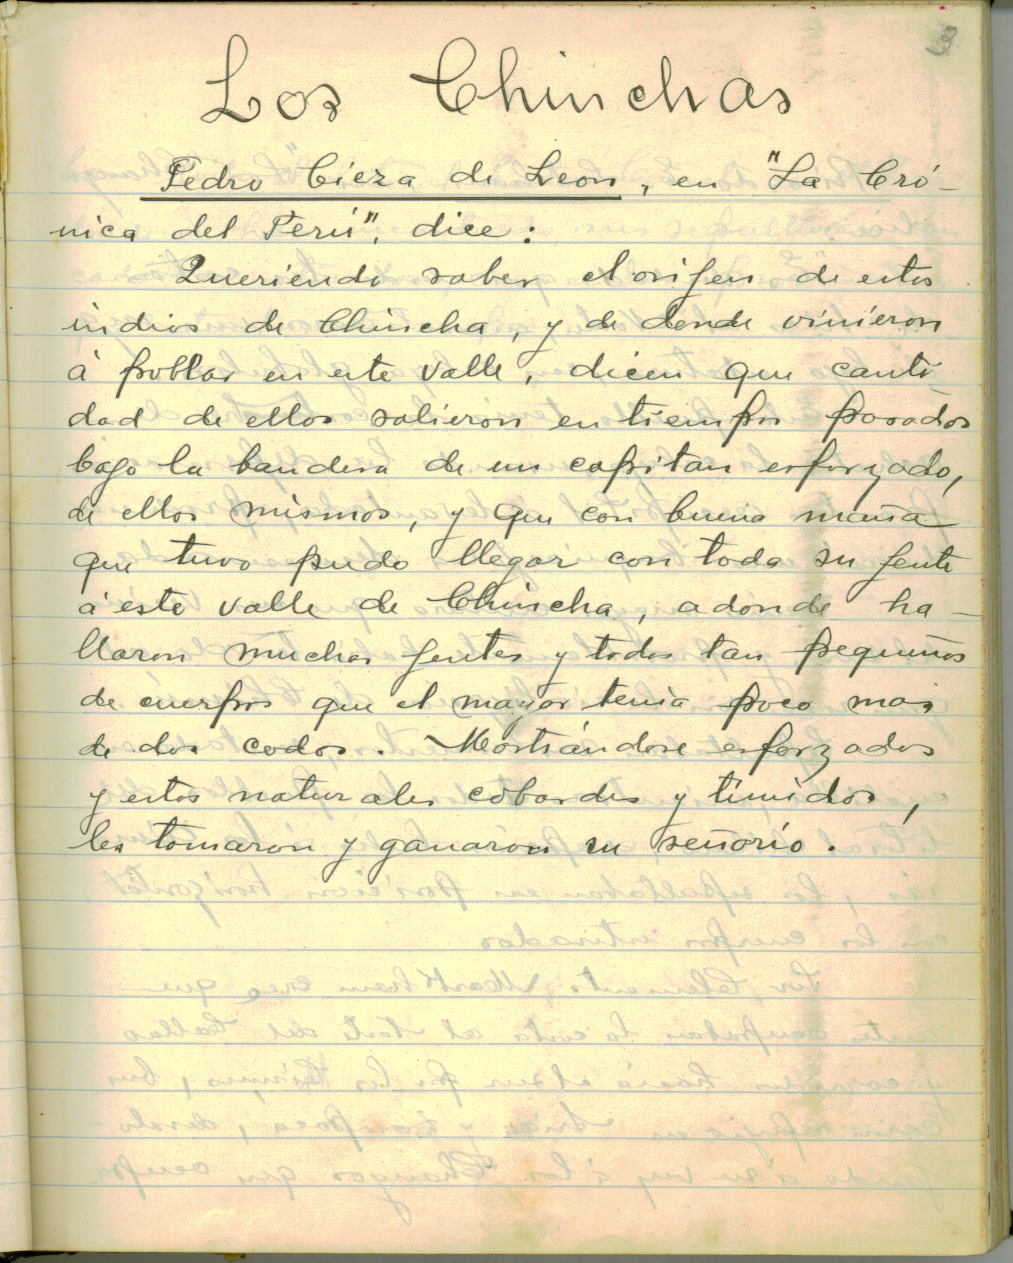 Los Chinchas
Pedro Cieza de Leon, en "La Cró-
nica del Perú", dice:
Queriendo saber el origen de estos
indios de Chincha, y de donde vinieron
á poblar en este valle, dicen que canti
dad de ellos salieron en tiempos pasados
bajo la bandera de un capitan esforzado,
de ellos mismos, y que con buena maña
que tuvo pudo llegar con toda su gente
á este valle de Chincha, adonde ha-
llaron muchas gentes y todos tan pequeños
de cuerpos que el mayor tenía poco mas
de dos codos. Mostrándose esforzados
y estos naturales cobardes y tímidos,
les tomaron y ganaron su señorío.